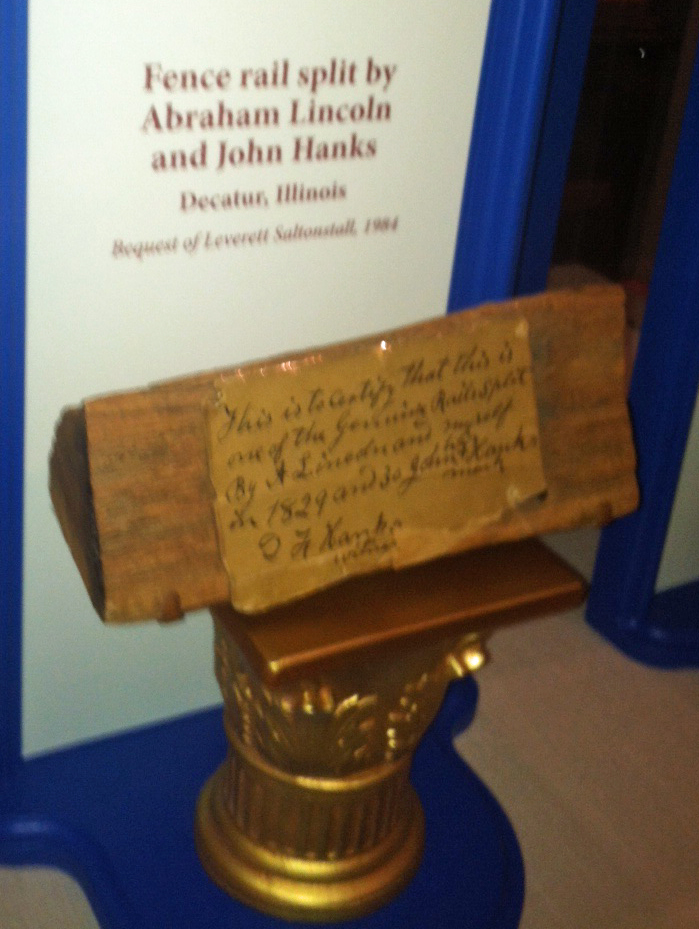 Fence rail split by
Abraham Lincoln
and John Hanks
Decatur, Illinois
Bequest of Leverett Saltonstall, 1984
This is to certify that this is
one of the Genuine Rails Split
By A Lincoln and myself
In 1829 and 30 John X Hanks
his
mark
Hanks